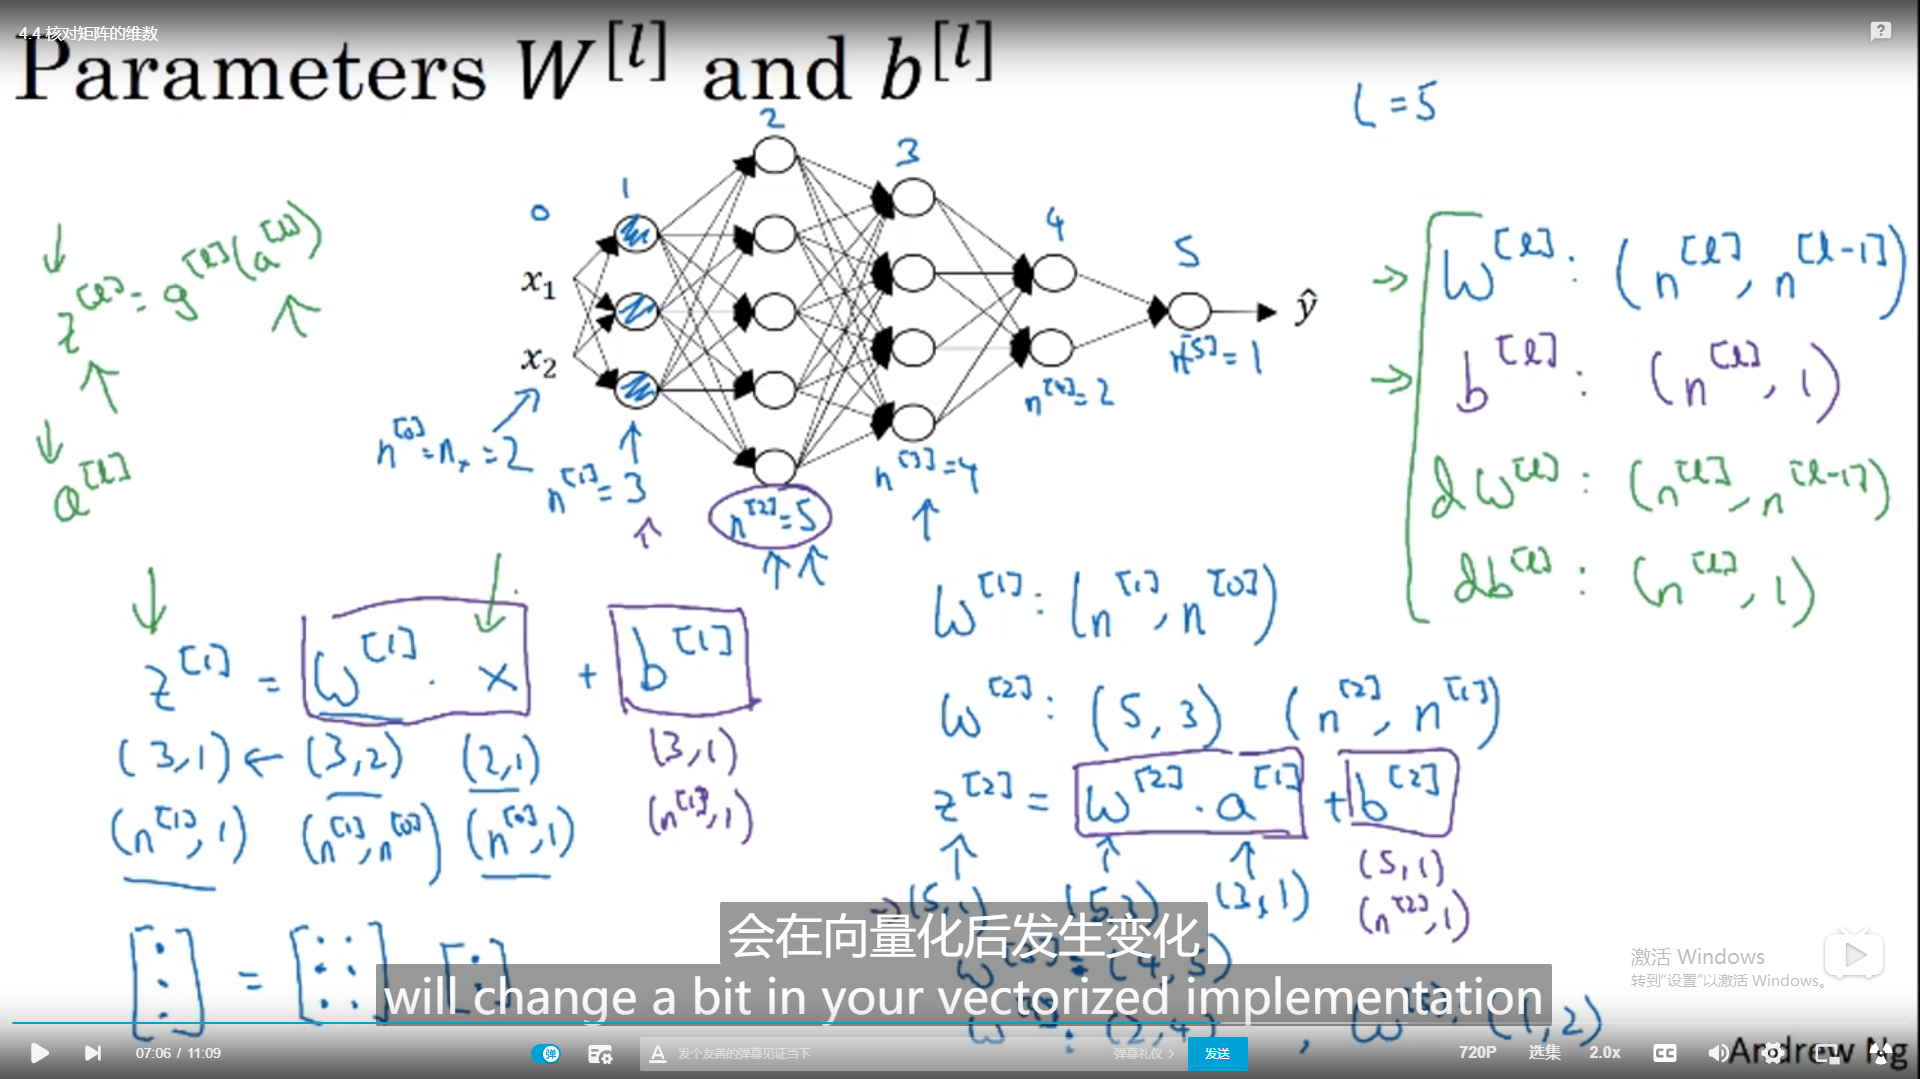 4.4 核对矩阵的维数
Parameters W^[l] and b^[l]
L = 5
0
1
2
3
4
5
x₁
x₂
ŷ
n^[0] = nₓ = 2
n^[1] = 3
n^[2] = 5
n^[3] = 4
n^[4] = 2
n^[5] = 1
z^[l] = g^[l](a^[l])
a^[l]
W^[l] : (n^[l], n^[l-1])
b^[l] : (n^[l], 1)
dW^[l] : (n^[l], n^[l-1])
db^[l] : (n^[l], 1)
z^[1] = W^[1] · x + b^[1]
(3,1) ← (3,2) (2,1) (3,1)
(n^[1], 1) (n^[1], n^[0]) (n^[0], 1) (n^[1], 1)
W^[1] : (n^[1], n^[0])
W^[2] : (5, 3) (n^[2], n^[1])
z^[2] = W^[2] · a^[1] + b^[2]
→ (5,1) (5,3) (3,1) (5,1)
(n^[2], 1)
(4,5)
(2,4) , (1,2)
会在向量化后发生变化
will change a bit in your vectorized implementation
激活 Windows
转到“设置”以激活 Windows。
Andrew Ng
07:06 / 11:09
弹
发个友善的弹幕见证当下
弹幕礼仪 >
发送
720P
选集
2.0x
CC